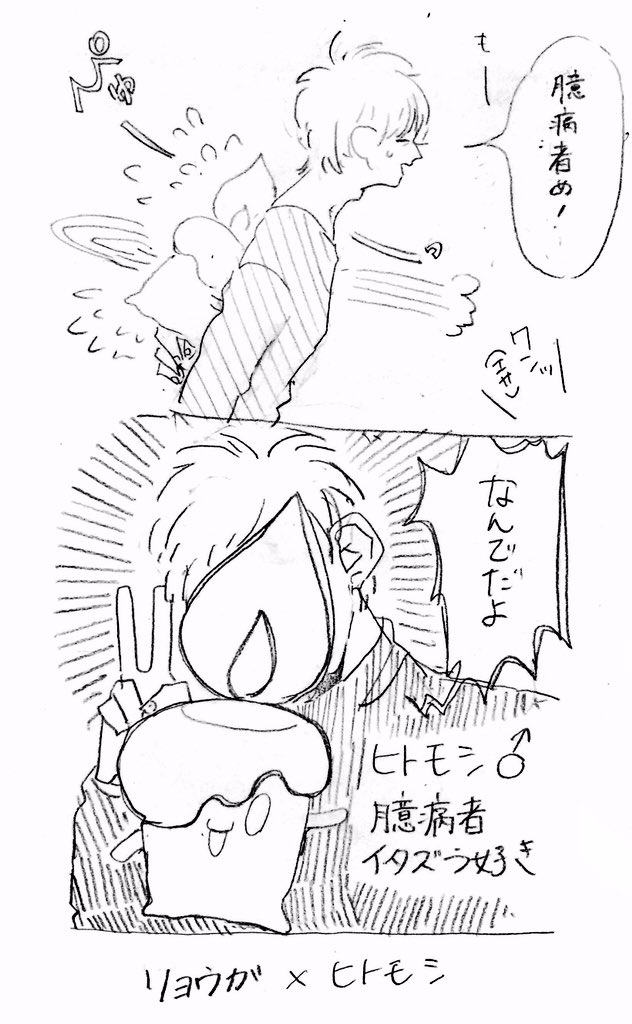 もー
臆病者め!
ぴゅー
ワンッ
なんでだよ
ヒトモシ♂
臆病者
イタズラ好き
リョウガ×ヒトモシ